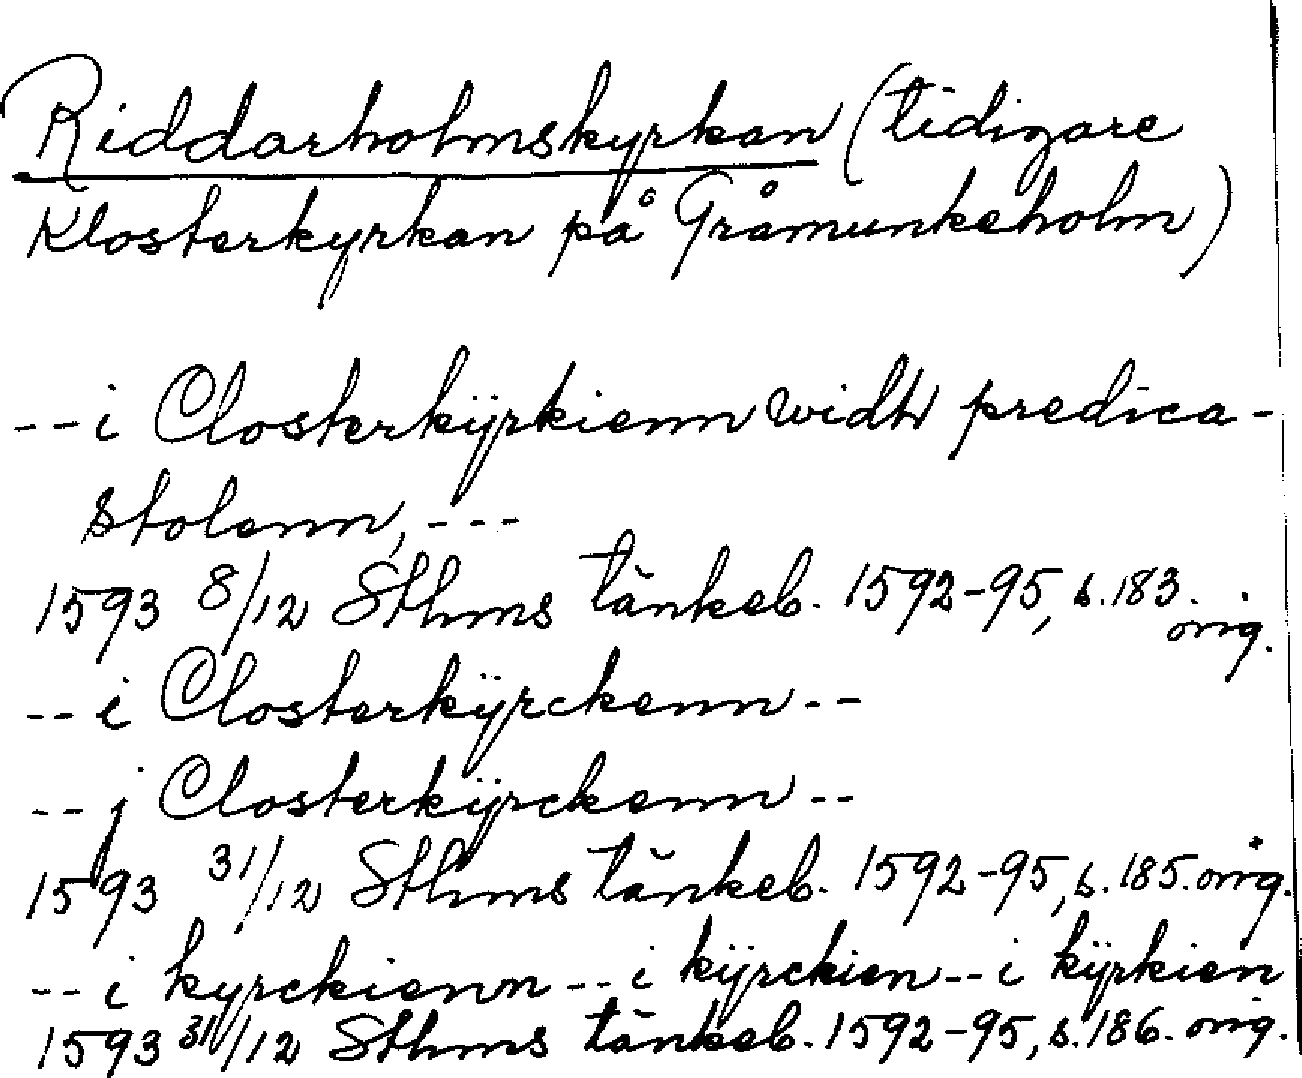 Riddarholmskyrkan (tidigare
Klosterkyrkan på Gråmunkeholm)
--i Closterkÿrkienn widh predica-
stolenn, ---
1593 8/12 Sthms tänkeb. 1592-95, s. 183. orig.
--i Closterkÿrckenn--
--j Closterkÿrckenn--
1593 31/12 Sthms tänkeb. 1592-95, s. 185. orig.
--i kyrckienn--i kÿrckien--i kÿrkien
1593 31/12 Sthms tänkeb. 1592-95, s. 186. orig.